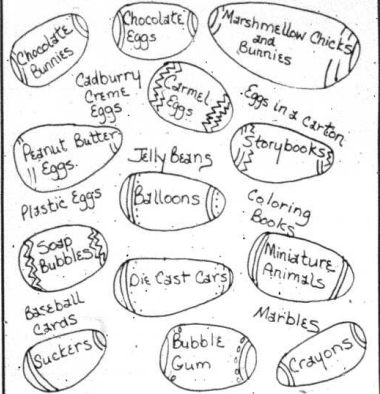 Chocolate
Bunnies
Chocolate
Eggs
Marshmellow Chicks
and
Bunnies
Cadburry
Creme
Eggs
Carmel
Eggs
Eggs in a carton
Peanut Butter
Eggs.
Jelly Beans
Storybooks
Plastic Eggs
Balloons
Coloring
Books
Soap
Bubbles
Die Cast Cars
Miniature
Animals
Baseball
Cards
Marbles
Suckers
Bubble
Gum
Crayons